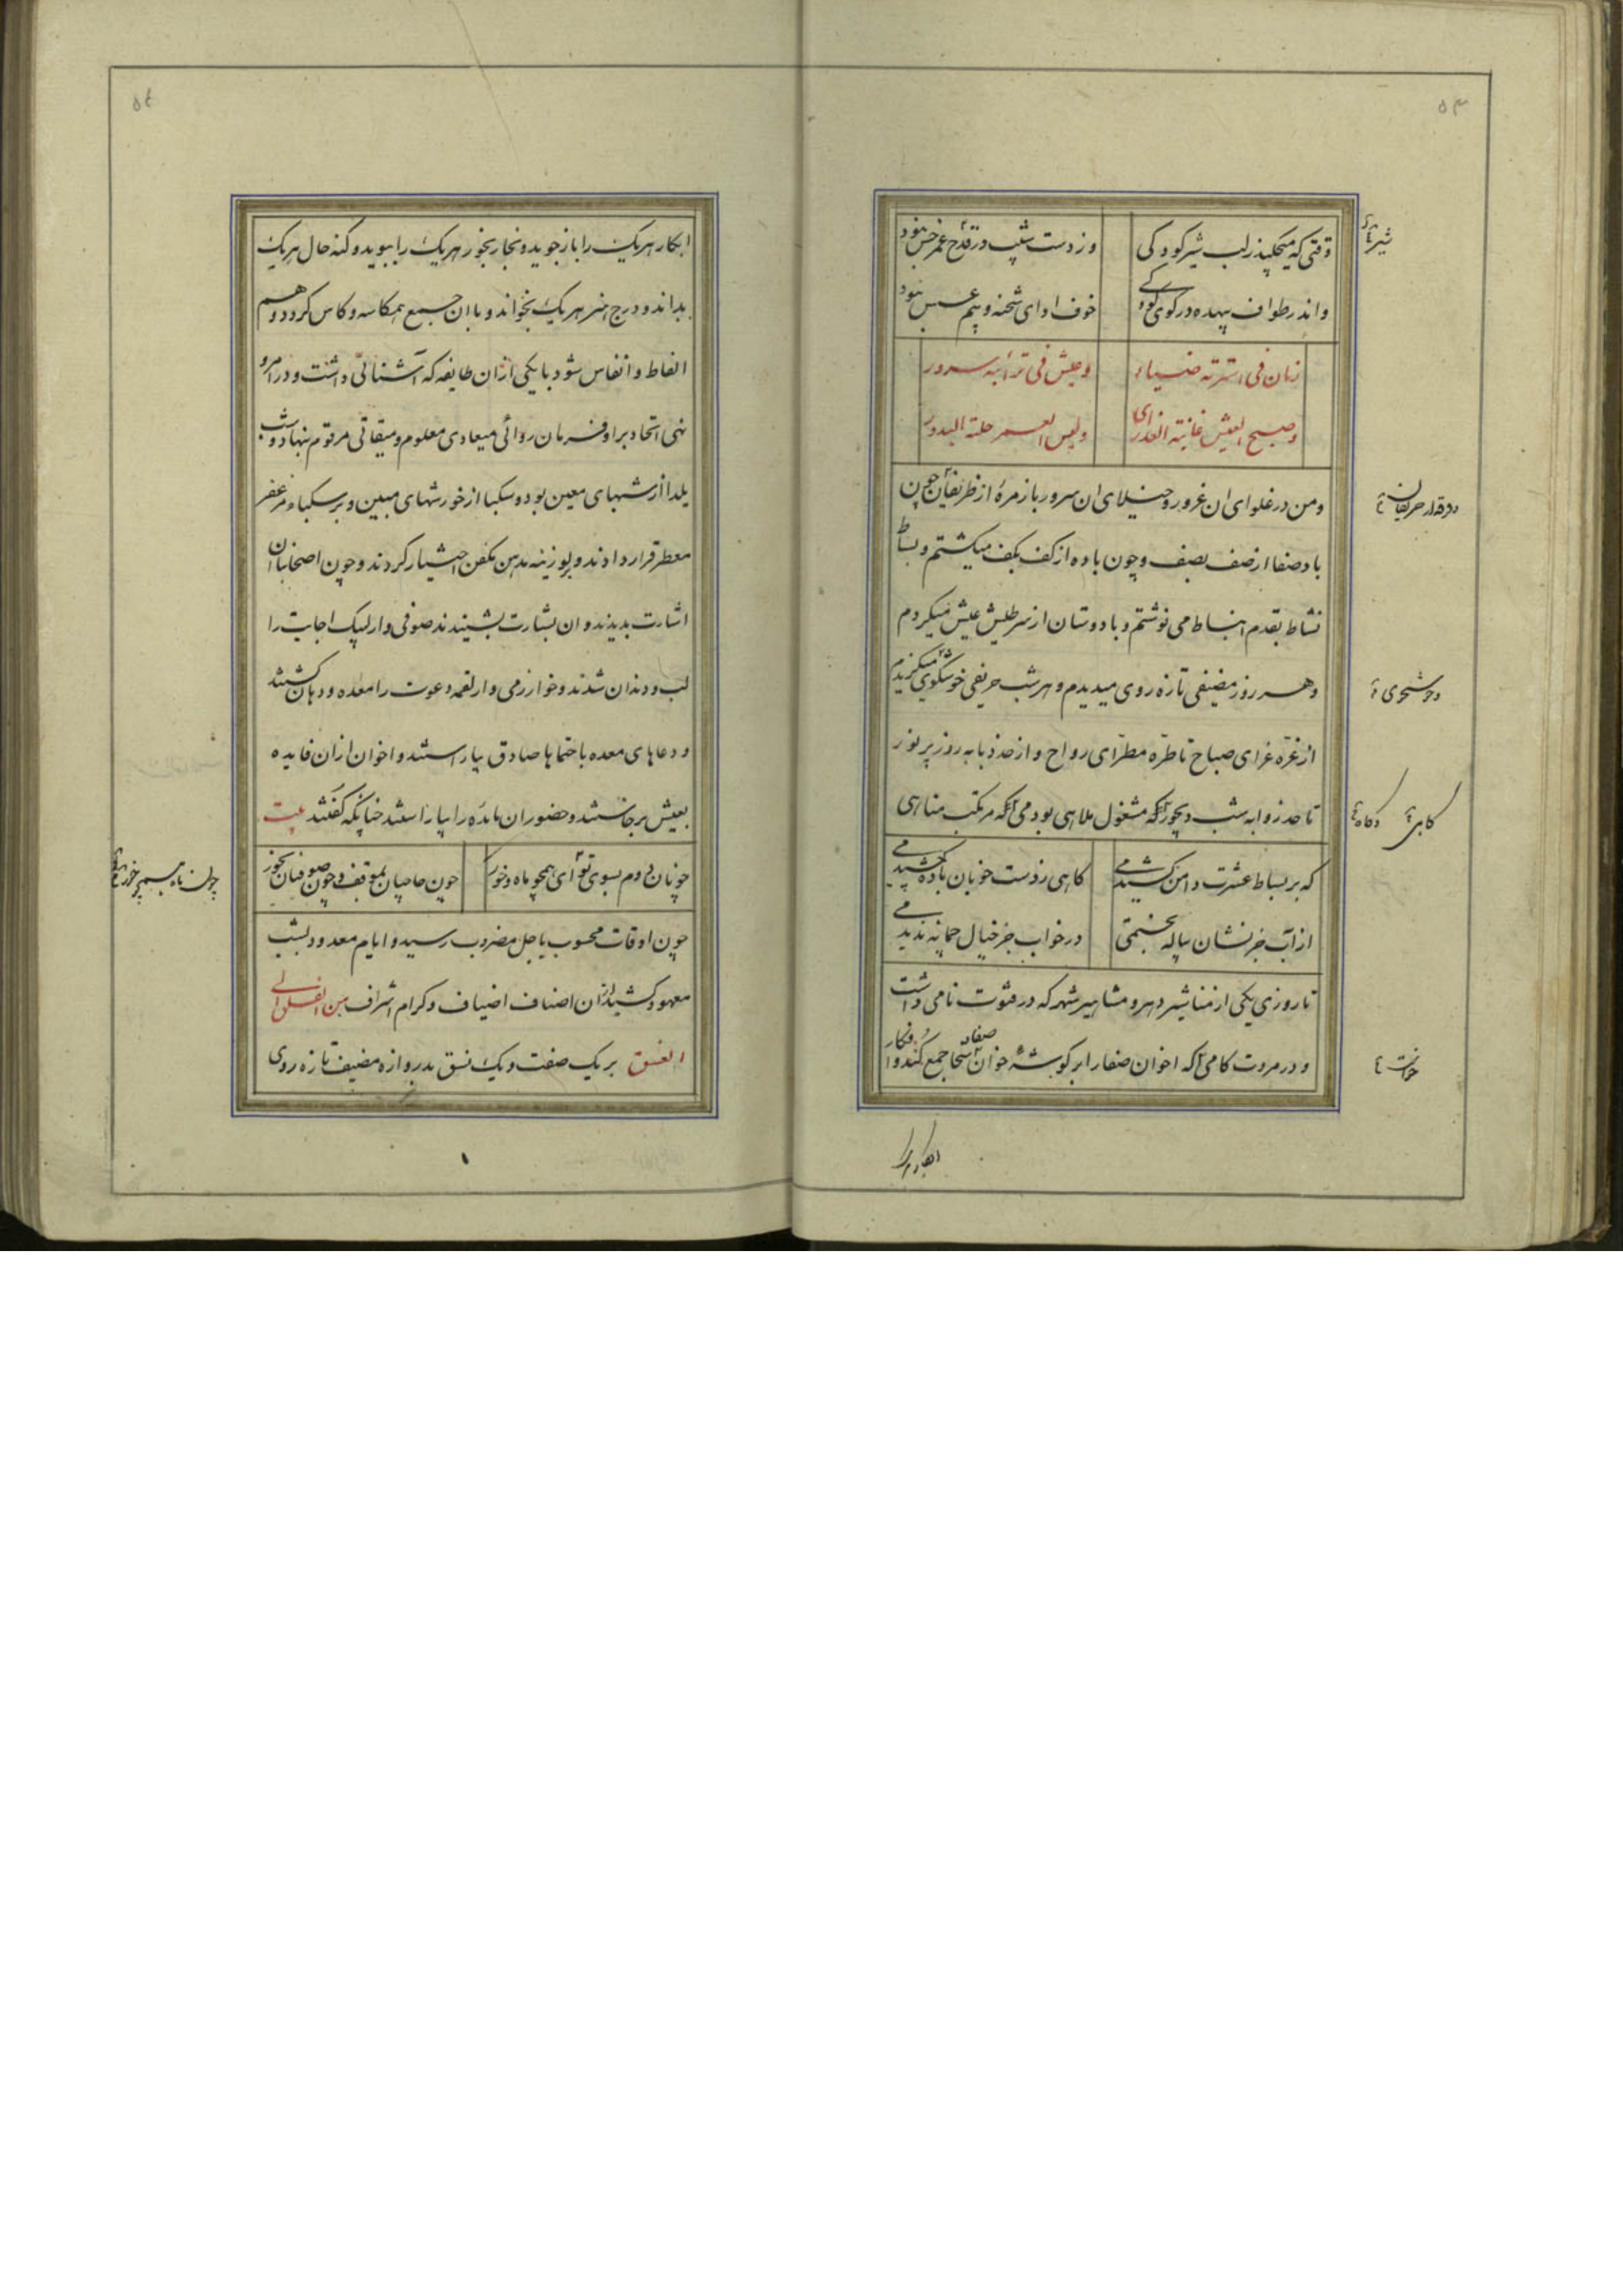 ۵۳
وقتی که میچکید ز لب شیر کودکی
وز دست شیب در قدح عمر خس نبود
واندر طواف بیهده در کوی کودکی
خوف اوای شحنه و بیم عسس نبود
زمان فی اسرته ضیاء
وعیش فی ترائبه سرور
وصبح العیش غانیة العذاری
ولیس العمر حلته البدور
ومن در غلوای ان غرور و خیلای ان سرور با زمرهٔ از ظریفان چون
باد صفا از صف بصف و چون باده از کف بکف میکشتم و بساط
نشاط بقدم انبساط می نوشتم و با دوستان از سر طیش عیش میکردم
وهر روز مضیفی تازه روی میدیدم و هر شب حریفی خوشکوی میکزیدم
از غرّه غرای صباح تا طرّه مطرّای رواح و از حد دبابه روز پر نور
تا حد زوابه شب دیجور آنکه مشغول ملاهی بودمی آنکه مرتکب مناهی
که بر بساط عشرت دامن کشیدمی
کاهی ز دست خوبان باده چشیدمی
از آب جز نشان پیاله نجستمی
در خواب جز خیال چمانه ندیدمی
تا روزی یکی از مناشیر دهر و مشاهیر شهر که در فتوت نامی داشت
و در مروت کامی آنکه اخوان صفا را بر کوشهٔ خوان سخا جمع کند و ابکار
شیر
خوشخوی
کاهی
۵۴
ابکار هر یک را باز جوید و نجار بخور هر یک را ببوید و کنه حال هر یک
بداند و درج هنر هر یک بخواند و با ان جمع همکاسه و کاس کردد و هم
الفاظ و انفاس شود با یکی از ان طایفه که آشنائی داشت و در امر و
نهی اتحاد بر او فرمان روائی میعادی معلوم و میقاتی مرقوم بنهاد و شب
یلدا از شبهای معین بود و سکبا از خورشهای مبین و بر سکباء مزعفر
معطر قرار دادند و لوزینه بدهن مکفن اختیار کردند و چون اصحاب ان
اشارت بدیدند و ان بشارت بشنیدند صوفی وار لبیک اجابت را
لب و دندان شدند و خوارزمی وار لقمه دعوت را معده و دهان کشتند
و دعاهای معده باحتماها صادق بیاراستند و اخوان از ان فایده
بعیش برخاستند و حضور ان مایده را بیاراستند چنانکه گفتند بیت
چونان دوم بسوی تو ای همچو ماه و خور
چون حاجیان بموقف و چون صوفیان بخور
چون اوقات محسوب باجل مضروب رسید و ایام معدود بشب
معهود کشید از ان اصناف اضیاف و کرام اشراف من الفلق الی
الغسق بر یک صفت و یک نسق بدروازه مضیف تازه روی